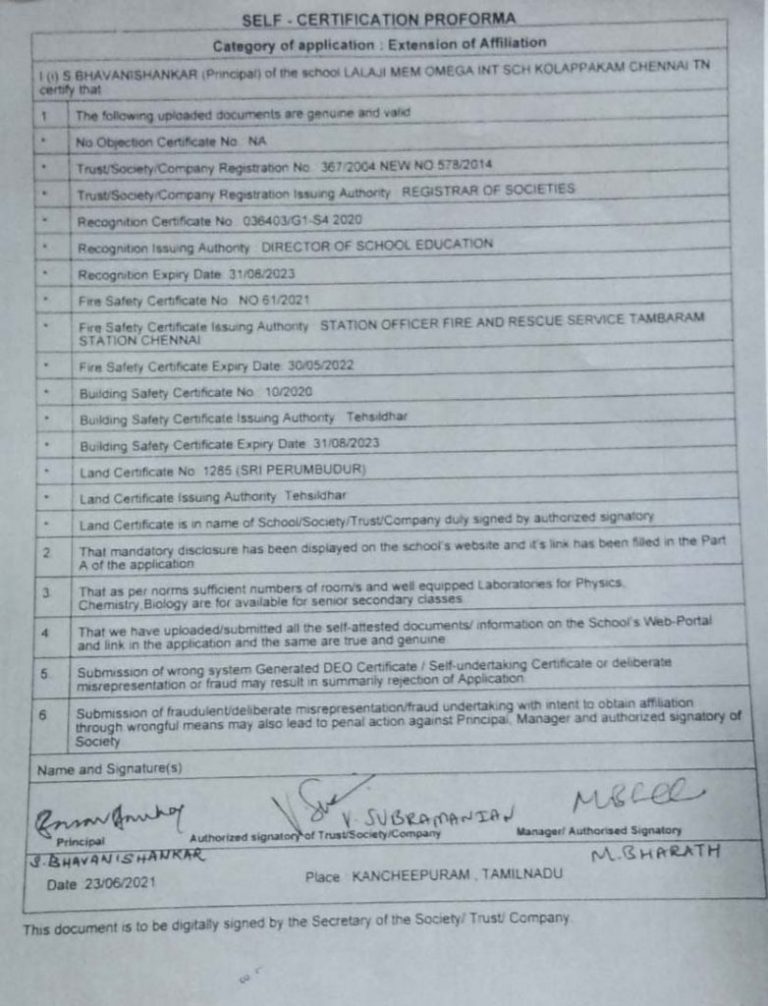 SELF - CERTIFICATION PROFORMA
Category of application : Extension of Affiliation
I (i) S BHAVANISHANKAR (Principal) of the school LALAJI MEM OMEGA INT SCH KOLAPPAKAM CHENNAI TN
certify that
1 The following uploaded documents are genuine and valid
* No Objection Certificate No NA
* Trust/Society/Company Registration No 367/2004 NEW NO 578/2014
* Trust/Society/Company Registration Issuing Authority REGISTRAR OF SOCIETIES
* Recognition Certificate No 036403/G1-S4 2020
* Recognition Issuing Authority DIRECTOR OF SCHOOL EDUCATION
* Recognition Expiry Date 31/08/2023
* Fire Safety Certificate No NO 61/2021
* Fire Safety Certificate Issuing Authority STATION OFFICER FIRE AND RESCUE SERVICE TAMBARAM
STATION CHENNAI
* Fire Safety Certificate Expiry Date 30/05/2022
* Building Safety Certificate No 10/2020
* Building Safety Certificate Issuing Authority Tehsildhar
* Building Safety Certificate Expiry Date 31/08/2023
* Land Certificate No 1285 (SRI PERUMBUDUR)
* Land Certificate Issuing Authority Tehsildhar
* Land Certificate is in name of School/Society/Trust/Company duly signed by authorized signatory
2 That mandatory disclosure has been displayed on the school's website and it's link has been filled in the Part
A of the application
3 That as per norms sufficient numbers of room/s and well equipped Laboratories for Physics,
Chemistry,Biology are for available for senior secondary classes
4 That we have uploaded/submitted all the self-attested documents/ information on the School's Web-Portal
and link in the application and the same are true and genuine
5 Submission of wrong system Generated DEO Certificate / Self-undertaking Certificate or deliberate
misrepresentation or fraud may result in summarily rejection of Application
6 Submission of fraudulent/deliberate misrepresentation/fraud undertaking with intent to obtain affiliation
through wrongful means may also lead to penal action against Principal, Manager and authorized signatory of
Society
Name and Signature(s)
V. SUBRAMANIAN
Principal Authorized signatory of Trust/Society/Company Manager/ Authorised Signatory
S. BHAVANISHANKAR M. BHARATH
Date 23/06/2021 Place KANCHEEPURAM , TAMILNADU
This document is to be digitally signed by the Secretary of the Society/ Trust/ Company.